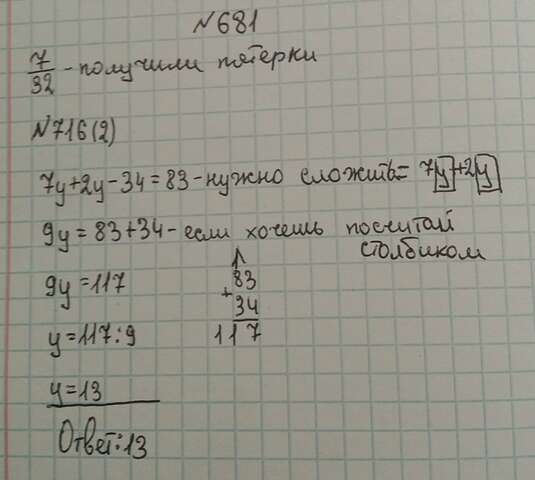 №681
7/32 - получили пятерки
№716(2)
7y+2y-34=83-нужно сложить= 7y+2y
9y=83+34-если хочешь посчитай
столбиком
9y=117
83
+
34
117
y=117:9
y=13
Ответ:13